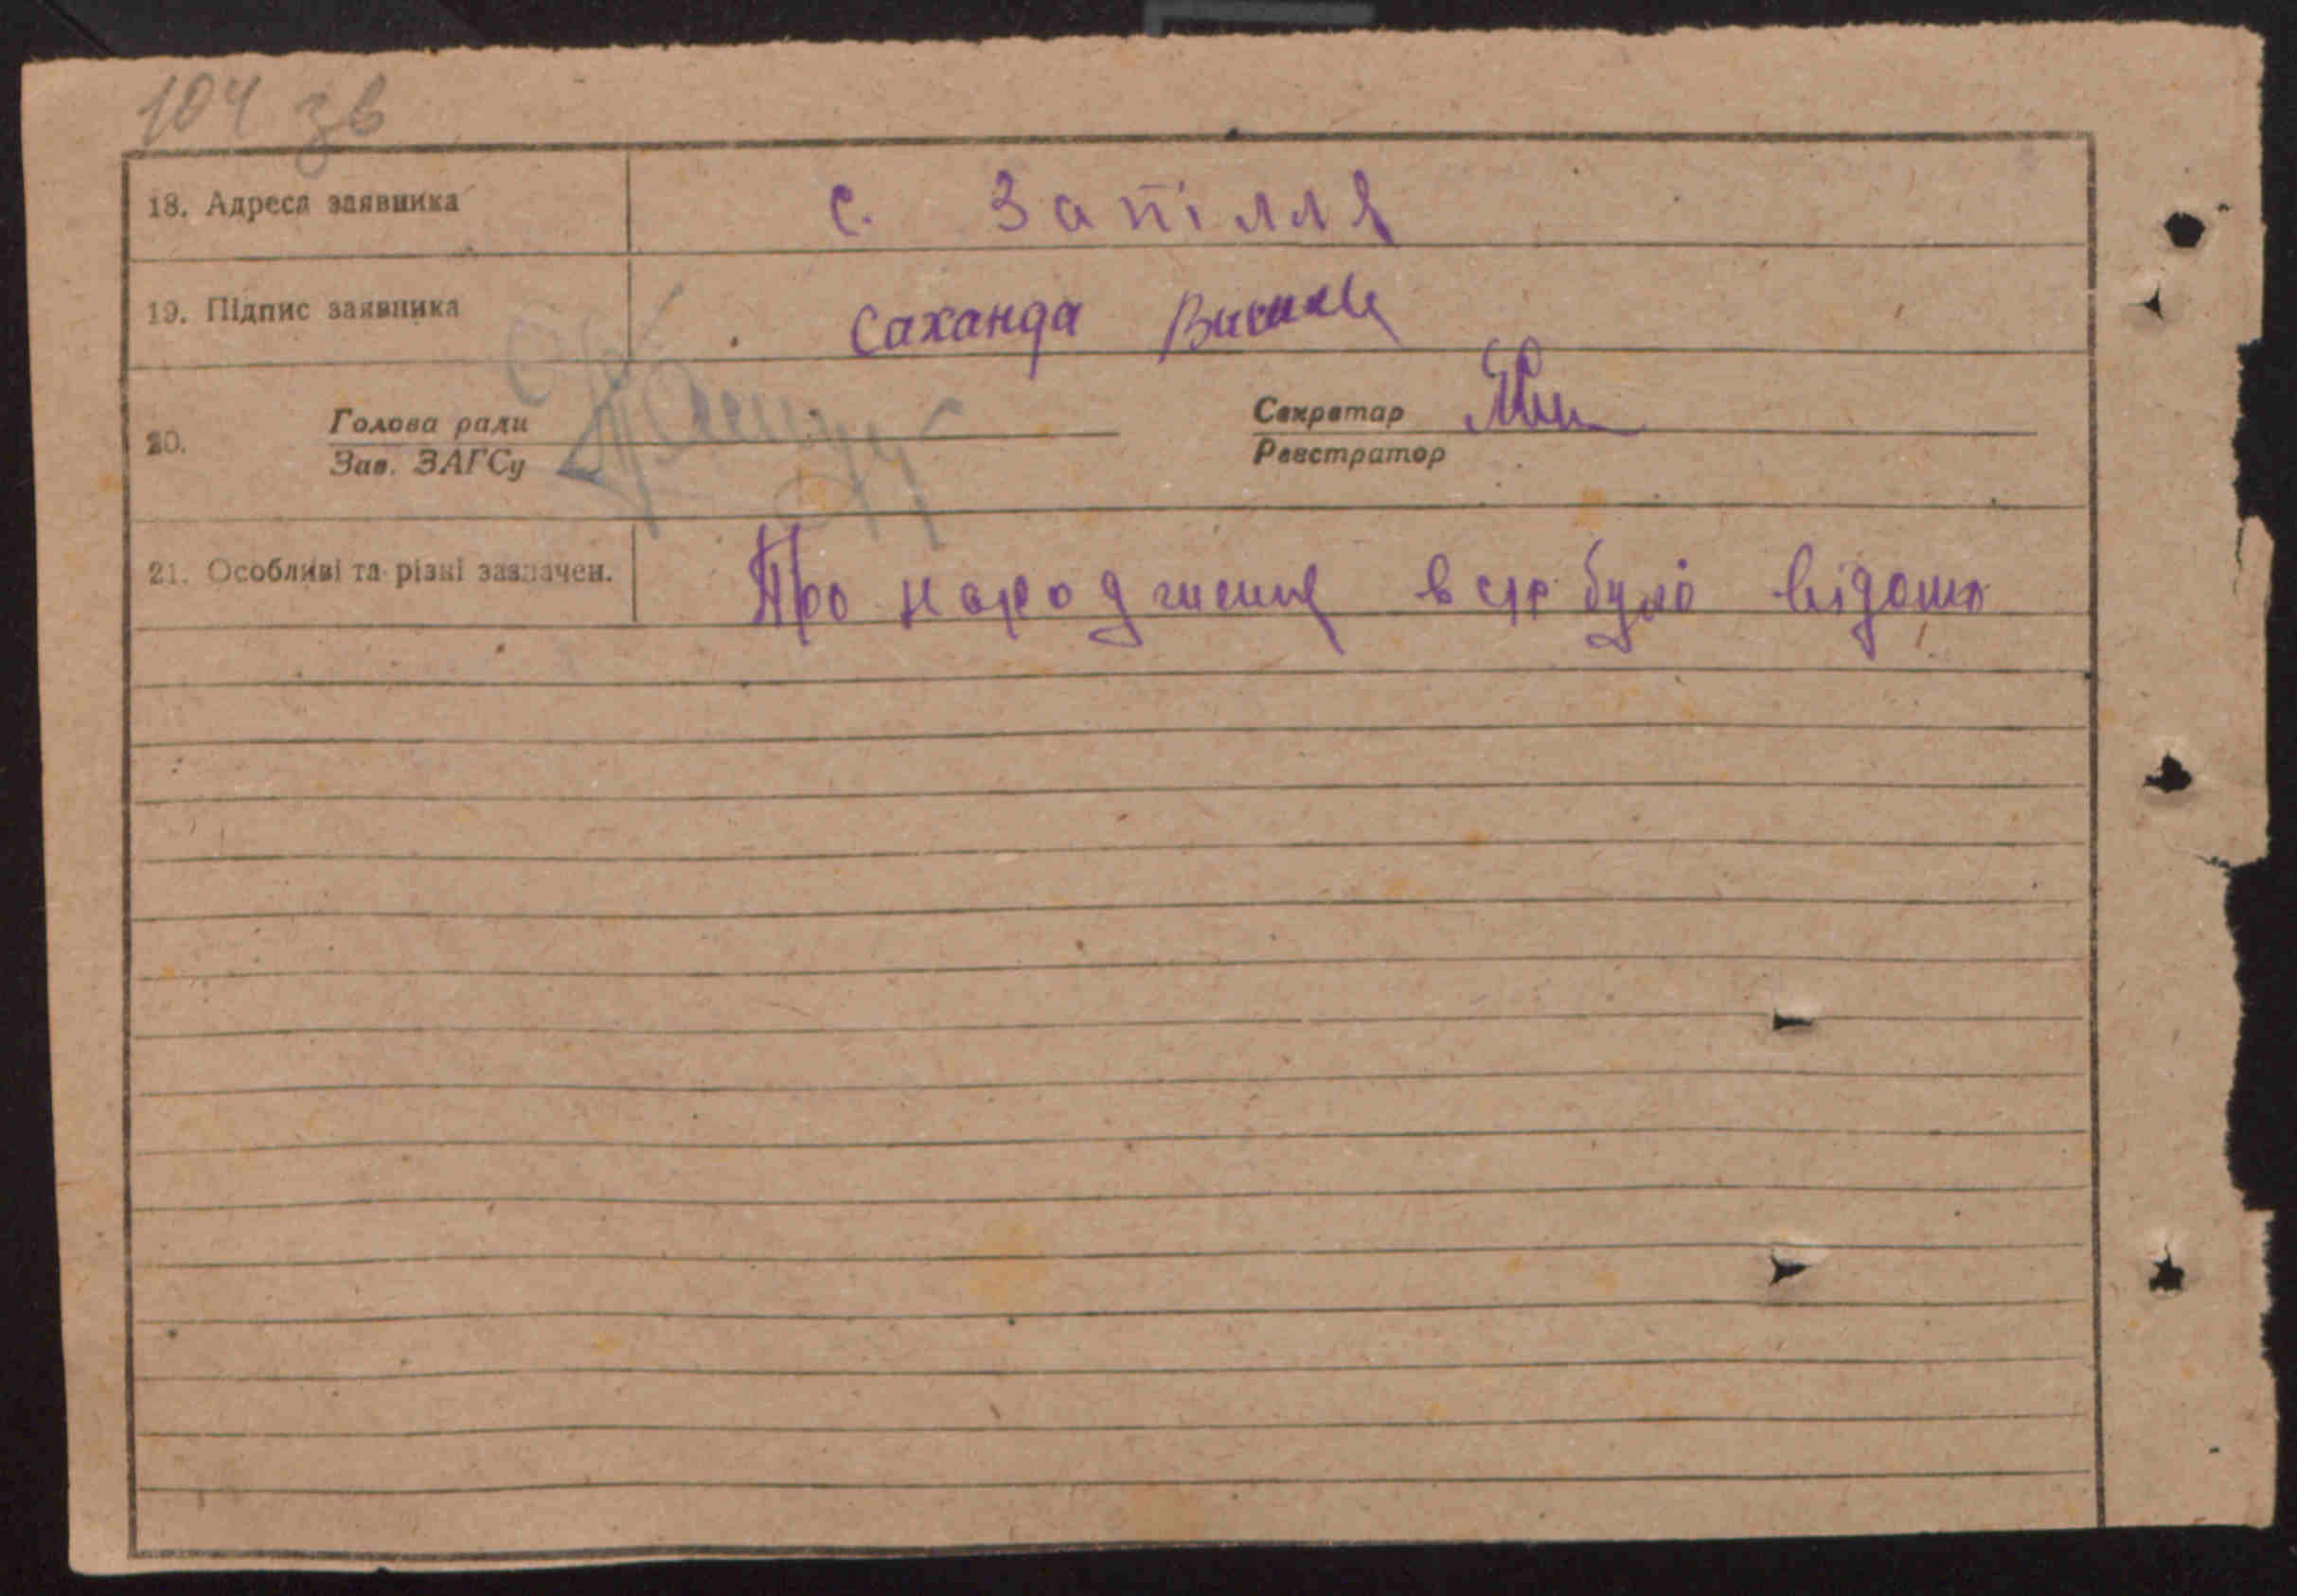 104 зв
18. Адреса заявника с. Запілля
19. Підпис заявника Саханда
Голова ради Секретар
20.
Зав. ЗАГСу Реєстратор
21. Особливі та різні зазначен. Про народження було відомо